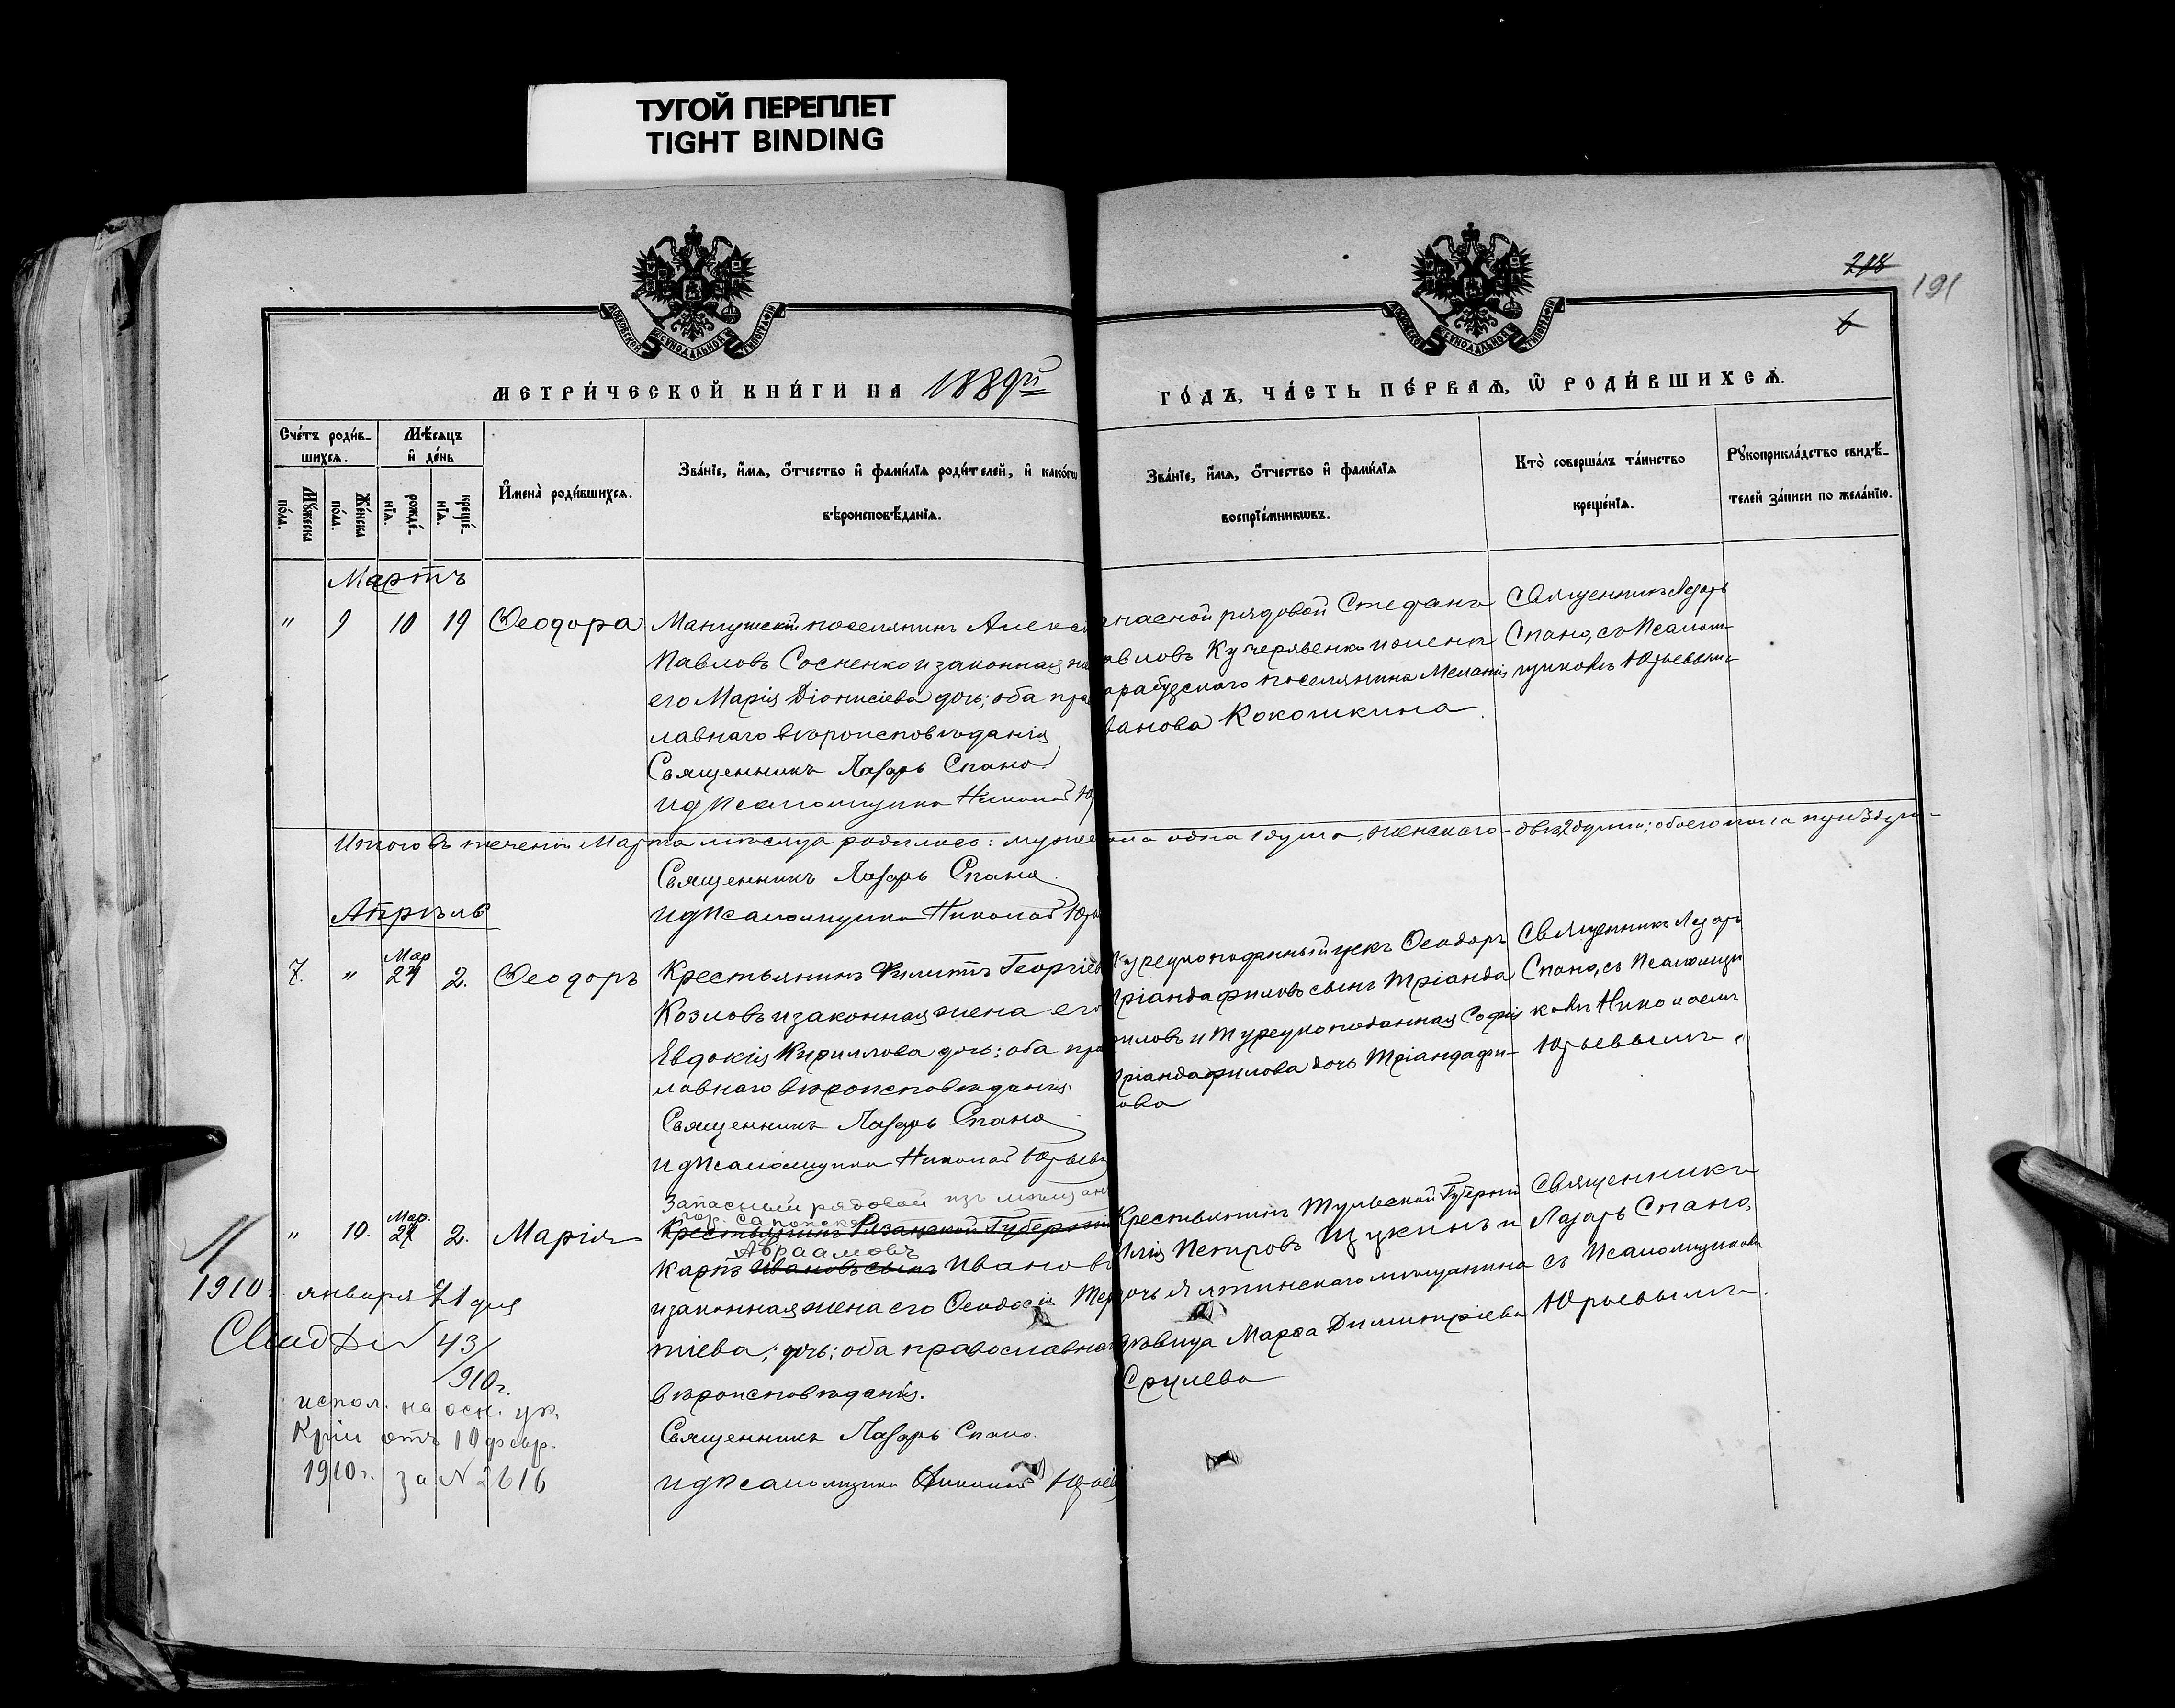 ТУГОЙ ПЕРЕПЛЕТ
TIGHT BINDING
МОСКОВСКОЙ СѴНОДАЛЬНОЙ ТИПОГРАФІИ
МОСКОВСКОЙ СѴНОДАЛЬНОЙ ТИПОГРАФІИ
218
191
6
МЕТРИ́ЧЕСКОЙ КНИ́ГИ НА 1889й
ГО́ДЪ, ЧА́СТЬ ПЕ́РВАѦ, Ѿ РОДИ́ВШИХСѦ.
Сче́тъ роди́в-
шихсѧ.
Мѣ́сѧцъ
и҆ де́нь
Мꙋ́жеска
по́ла.
Же́нска
по́ла.
рожде́-
нїѧ.
креще́-
нїѧ.
И҆мена̀ роди́вшихсѧ.
Зва́нїе, и҆́мѧ, ѻ҆́тчество и҆ фами́лїѧ роди́телей, и҆ како́гѡ
вѣроисповѣ́данїѧ.
Зва́нїе, и҆́мѧ, ѻ҆́тчество и҆ фами́лїѧ
воспрїе́мникѡвъ.
Кто̀ соверша́лъ та́инство
креще́нїѧ.
Рꙋкоприкла́дство свидѣ́-
телей за́писи по жела́нїю.
Мартъ
" 9 10 19 Ѳеодора
Мангушскій поселянинъ Алекса
Павловъ Сосненко и законная же
его Марія Діонисіева дочь; оба пра
лавнаго вѣроисповѣданія
Священникъ Лазарь Спано
И д Псаломщика Николай Юр
апасной рядовой Стефанъ
авловъ Кучерявенко и
арабузскаго поселянина Меланія
ванова Кокошкина
Священникъ Лазарь
Спано, съ Псалом-
щикомъ Юрьевымъ
Итого въ теченіи Марта мѣсяца родилось: мужес ола одна 1 душа, женскаго - двѣ 2 души; обоего пола три 3 души
Священникъ Лазарь Спано
И д Псаломщика Николай Юрье
Апрѣль
7. " Мар 27 2. Ѳеодоръ
Крестьянинъ Филиппъ Георгіев
Козловъ и законная жена его
Евдокія Кириллова дочь; оба пра
лавнаго вѣроисповѣданія.
Священникъ Лазарь Спано
И д Псаломщика Николай Юрьевъ
урецкоподанный грекъ Ѳеодоръ
ріандафиловъ сынъ Тріанда
иловъ и Турецкоподанная Софія
ріандафилова дочь Тріандафи-
ова
Священникъ Лазарь
Спано, съ Псаломщи
комъ Николаемъ
Юрьевымъ
" 10. Мар. 27 2. Марія
Запасный рядовой изъ мѣщанъ
гор. Сапожска
Крестьянинъ Рязанской Губерніи
Авраамовъ
Карпъ Ивановъ сынъ Ивановъ
и законная жена его Ѳеодосія Тер
тіева; дочь; оба православнаг
вѣроисповѣданія.
Священникъ Лазарь Спано.
И д Псаломщика Николай Юрьев
Крестьянинъ Тульской Губерніи
Илія Петровъ Щукинъ и
дочь Ялтинскаго мѣщанина
дѣвица Марѳа Димитріева
Священникъ
Лазарь Спано,
съ Псаломщикомъ
Юрьевымъ.
1910 г. января 21 дня
43/910г.
испол. на осн. ук.
отъ 10 февр.
1910г. за N 2616